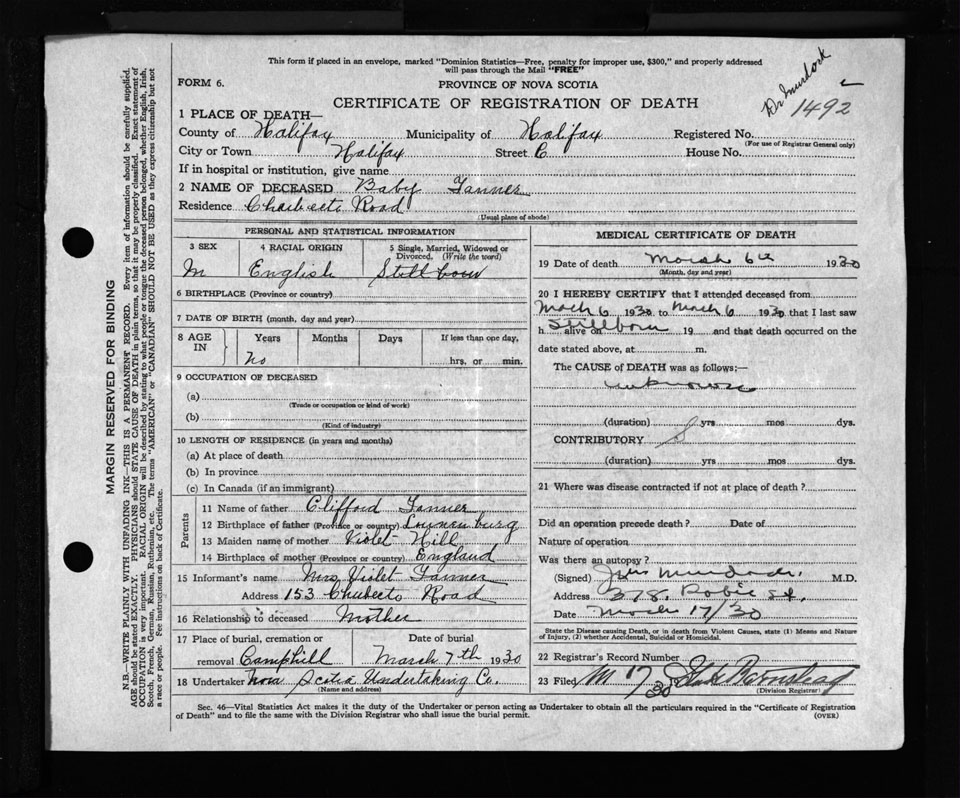 This form if placed in an envelope, marked "Dominion Statistics—Free, penalty for improper use, $300," and properly addressed
will pass through the Mail "FREE"
FORM 6.
PROVINCE OF NOVA SCOTIA
CERTIFICATE OF REGISTRATION OF DEATH
Dr Murdock
1492
1 PLACE OF DEATH—
County of Halifax Municipality of Halifax Registered No.
(For use of Registrar General only)
City or Town Halifax Street C House No.
If in hospital or institution, give name
2 NAME OF DECEASED Baby Tanner
Residence Chebucto Road
(Usual place of abode)
PERSONAL AND STATISTICAL INFORMATION
3 SEX 4 RACIAL ORIGIN 5 Single, Married, Widowed or
Divorced, (Write the word)
M English Still born
6 BIRTHPLACE (Province or country)
7 DATE OF BIRTH (month, day and year)
8 AGE IN Years Months Days If less than one day,
no hrs. or min.
9 OCCUPATION OF DECEASED
(a)
(Trade or occupation or kind of work)
(b)
(Kind of industry)
10 LENGTH OF RESIDENCE (in years and months)
(a) At place of death
(b) In province
(c) In Canada (if an immigrant)
Parents
11 Name of father Clifford Tanner
12 Birthplace of father (Province or country) Lunenburg
13 Maiden name of mother Violet Hill
14 Birthplace of mother (Province or country) England
15 Informant's name Mrs Violet Tanner
Address 153 Chubucto Road
16 Relationship to deceased Mother
17 Place of burial, cremation or Date of burial
removal Camphill March 7th 1930
18 Undertaker Nova Scotia Undertaking Co.
(Name and address)
MEDICAL CERTIFICATE OF DEATH
19 Date of death March 6th 1930
(Month, day and year)
20 I HEREBY CERTIFY that I attended deceased from
March 6 1930 to March 6 1930 that I last saw
h alive on Stillborn 19 and that death occurred on
date stated above, at m.
The CAUSE of DEATH was as follows:—
unknown
(duration) yrs mos dys.
CONTRIBUTORY
(duration) yrs mos dys.
21 Where was disease contracted if not at place of death?
Did an operation precede death? Date of
Nature of operation
Was there an autopsy?
(Signed) Murdock M.D.
Address 378 Robie St.
Date March 17/30
State the Disease causing Death, or in death from Violent Causes, state (1) Means and Nature
of Injury, (2) whether Accidental, Suicidal or Homicidal.
22 Registrar's Record Number
23 Filed M 17 30
(Division Registrar)
Sec. 46—Vital Statistics Act makes it the duty of the Undertaker or person acting as Undertaker to obtain all the particulars required in the "Certificate of Registration
of Death" and to file the same with the Division Registrar who shall issue the burial permit.
(OVER)
MARGIN RESERVED FOR BINDING
N.B.—WRITE PLAINLY WITH UNFADING INK—THIS IS A PERMANENT RECORD. Every item of information should be carefully supplied.
AGE should be stated EXACTLY. PHYSICIANS should STATE CAUSE OF DEATH in plain terms, so that it may be properly classified. Exact statement of
OCCUPATION is very important. RACIAL ORIGIN will be described by stating to what people or tongue the deceased person belonged, whether English, Irish,
Scotch, French, German, Russian, Ruthenian, etc. The terms "AMERICAN" or "CANADIAN" SHOULD NOT BE USED as they express citizenship but not
a race or people. Fee instructions on back of Certificate.